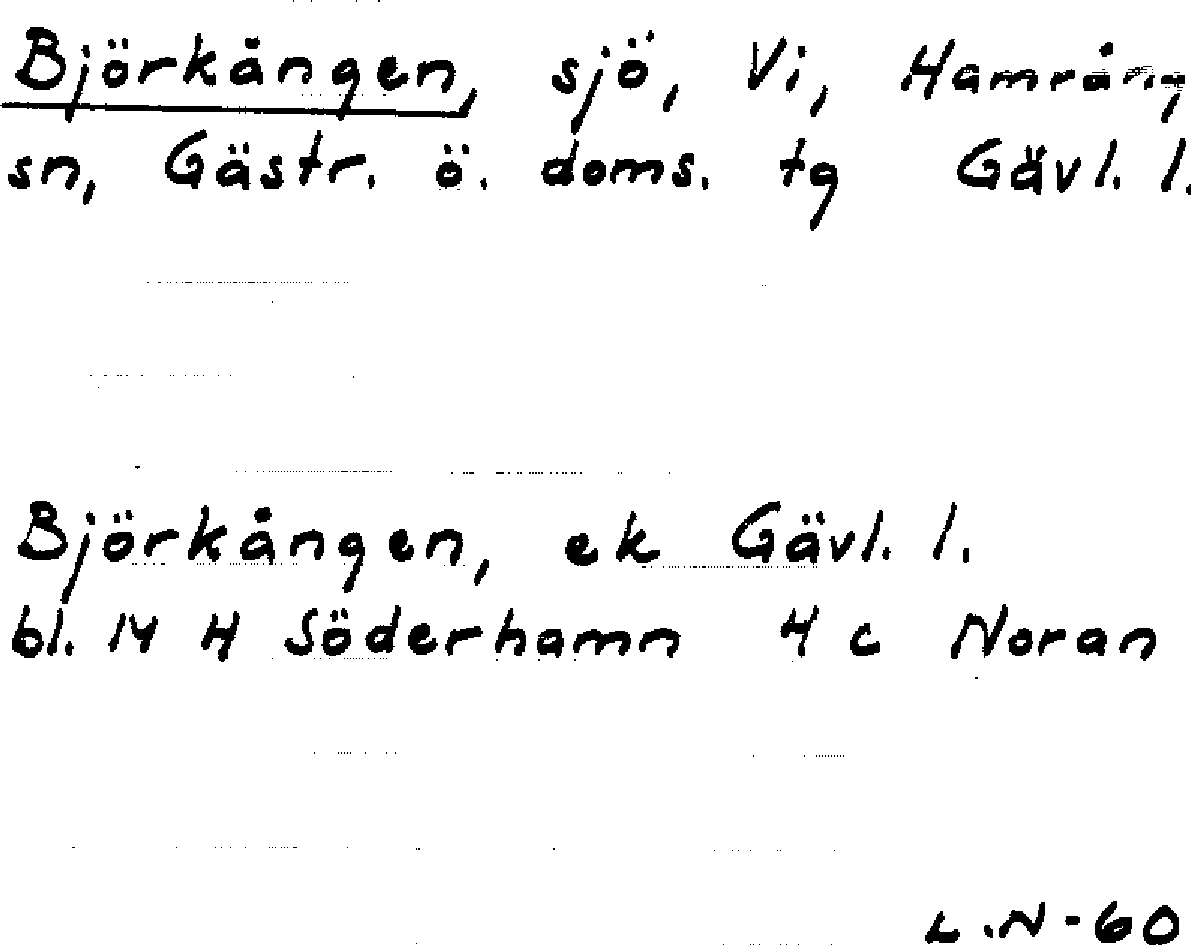 Björkången, sjö, Vi, Hamrång
sn, Gästr. ö. doms. tg Gävl. l.
Björkången, ek Gävl. l.
bl. 14 H Söderhamn 4 c Noran
L.N-60